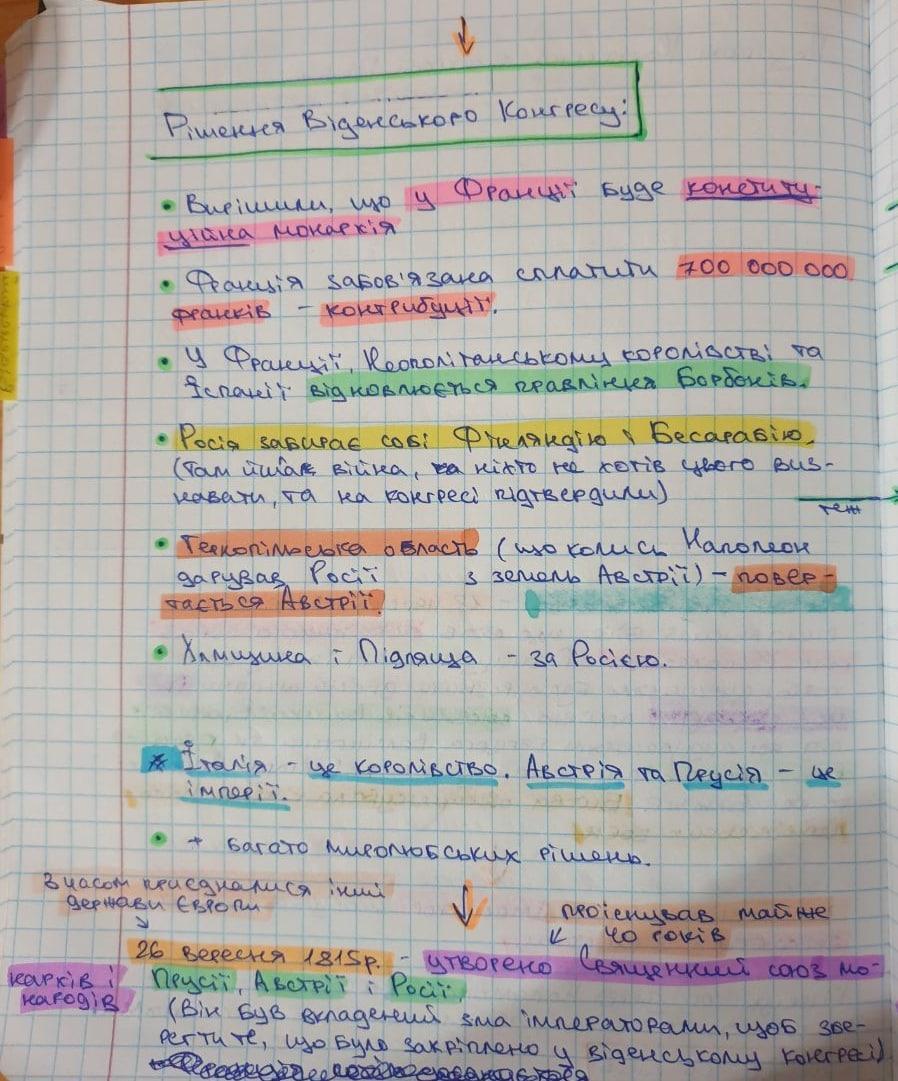 Рішення Віденського Конгресу:
• Вирішили, що у Франції буде конститу-
ційна монархія
• Франція забов'язана сплатити 700 000 000
франків – контрибуції.
• У Франції, Неополітанському королівстві та
Іспанії відновлюється правління Борбонів.
• Росія забирає собі Фінляндію і Бесарабію.
(там йшла війна, на ніхто не хотів цього виз-
навати, та на конгресі підтвердили)
теж
• Тернопільська область (що колись Наполеон
дарував Росії з земель Австрії) – повер-
тається Австрії.
• Холмщина і Підляща – за Росією.
* Італія – це королівство. Австрія та Прусія – це
імперії.
• + багато миролюбських рішень.
З часом приєдналися інші
держави Європи
проіснував майже
40 років
26 вересня 1815р. – утворено Священний союз мо-
нархів і
народів
Прусії, Австрії і Росії.
(Він був вкладений 3ма імператорами, щоб збе-
регти те, що було закріплено у Віденському конгресі)